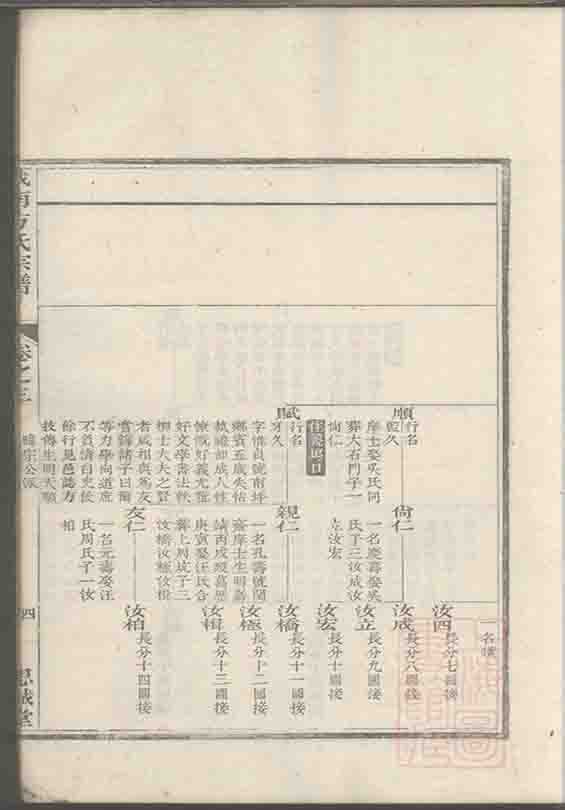 汝四
長分七圖後
汝成
長分八圖後
汝立
長分九圖後
汝宏
長分十圖後
汝橋
長分十一圖後
汝極
長分十二圖接
汝楫
長分十三圖接
汝柏
長分十四圖接
順
行名
葬大石門子一
尙仁
尙仁
一名慶壽娶吳
氏子三汝成汝
立汝宏
賦
行名
字惟貞號南坪
鄉賓五歲失怙
執禮如成人性
慷慨好義尤雅
好文學書法軼
柳士大夫之賢
者咸相與為友
嘗錄諸子曰爾
等力學向道庶
不負
餘行見邑誌方
技傳生明天順
親仁
一名孔壽號蘭
齋庠士生明嘉
靖丙戌歿萬曆
庚寅娶汪氏合
葬上周坑子三
汝橋汝極汝楫
友仁
一名元壽娶汪
氏周氏子一汝
柏
城南方氏宗譜
卷之三
四
思誠堂